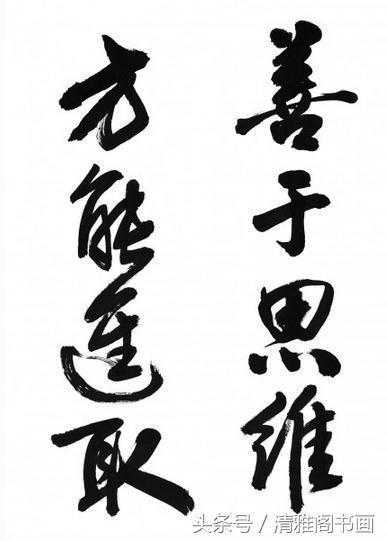 善于思维
方能進取
头条号/清雅阁书画